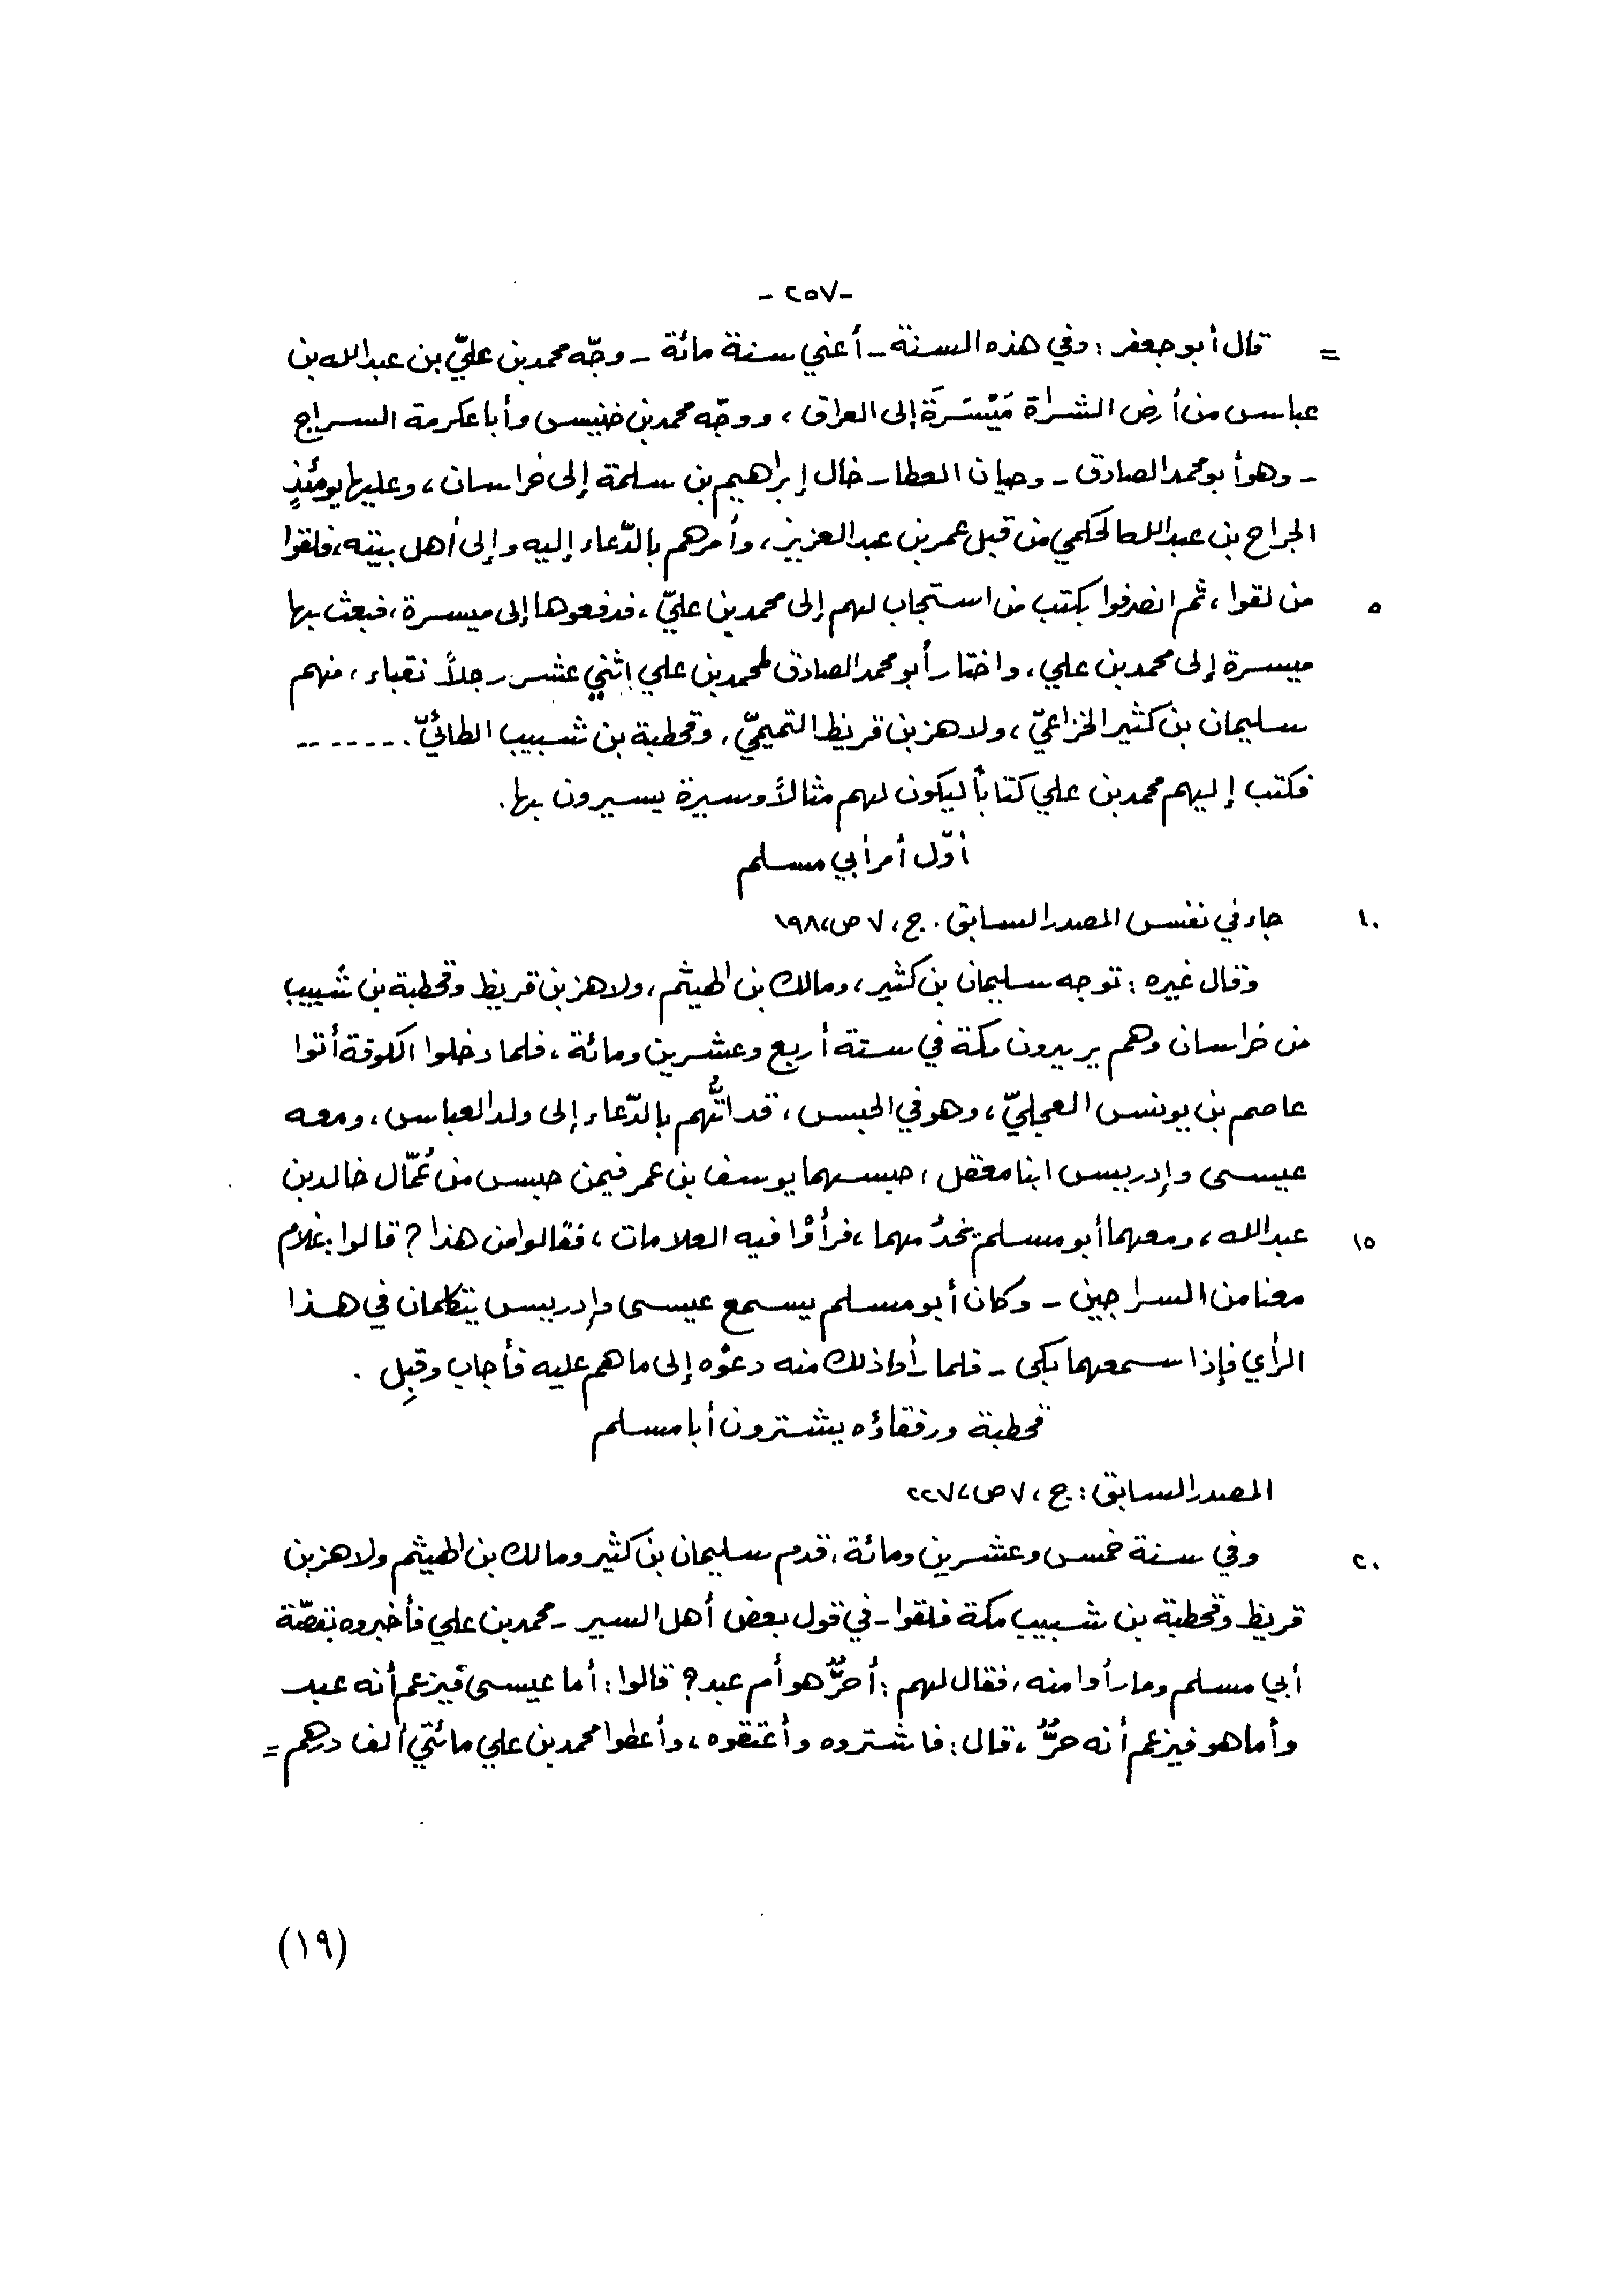 -٢٥٧-
= قال أبوجعفر: وفي هذه السنة - أعني سنة مائة - وجّه محمد بن عليّ بن عبدالله بن
عباس من أرض الشراة مَيْسَرَة إلى العراق، ووجّه محمد بن خنيس وأباعكرمة السراج
- وهو أبومحمد الصادق - وحيان العطار خال إبراهيم بن سلمة إلى خراسان، وعليها يومئذٍ
الجراح بن عبدالله الحكمي من قبل عمر بن عبدالعزيز، وأمرهم بالدّعاء إليه وإلى أهل بيته، فلقوا
٥ من لقوا، ثم انصرفوا بكتب من استجاب لهم إلى محمد بن عليّ، فدفعوها إلى ميسرة، فبعث بها
ميسرة إلى محمد بن علي، واختار أبومحمد الصادق لمحمد بن علي اثني عشر رجلاً نقباء، منهم
سليمان بن كثير الخزاعيّ، ولاهز بن قريظ التميميّ، وقحطبة بن شبيب الطائيّ. -------
فكتب إليهم محمد بن علي كتاباً ليكون لهم مثالاً وسيرة يسيرون بها.
أوّل أمر أبي مسلم
١٠ جاء في نفس المصدر السابق. ج، ٧ ص، ١٩٨
وقال غيره: توجه سليمان بن كثير، ومالك بن الهيثم، ولاهز بن قريظ وقحطبة بن شبيب
من خراسان وهم يريدون مكة في سنة أربع وعشرين ومائة، فلما دخلوا الكوفة أتوا
عاصم بن يونس العجليّ، وهو في الحبس، قد اتُّهم بالدّعاء إلى ولد العباس، ومعه
عيسى وإدريس ابنا معقل، حبسهما يوسف بن عمر فيمن حبس من عُمّال خالد بن
١٥ عبدالله، ومعهما أبومسلم يخدُمهما، فرأوْا فيه العلامات، فقالوا من هذا؟ قالوا: غلام
معنا من السراجين - وكان أبومسلم يسمع عيسى وإدريس يتكلمان في هذا
الرأي فإذا سمعهما بكى - فلما رأوا ذلك منه دعوْه إلى ما هم عليه فأجاب وقبِل.
قحطبة ورفقاؤه يشترون أبا مسلم
المصدر السابق: ج، ٧ ص، ٢٢٧
٢٠ وفي سنة خمس وعشرين ومائة، قدم سليمان بن كثير ومالك بن الهيثم ولاهز بن
قريظ وقحطبة بن شبيب مكة فلقوا - في قول بعض أهل السير - محمد بن علي فأخبروه بقصّة
أبي مسلم وما رأوا منه، فقال لهم: أحرٌّ هو أم عبد؟ قالوا: أما عيسى فيزعم أنه عبد
وأما هو فيزعم أنه حرٌّ، قال: فاشتروه وأعتقوه، وأعطوا محمد بن علي مائتي ألف درهم =
(١٩)